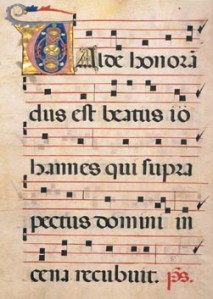 Valde honorā
dus est beatus iō
hannes qui supra
pectus domini in
cena recubuit. p̄s.